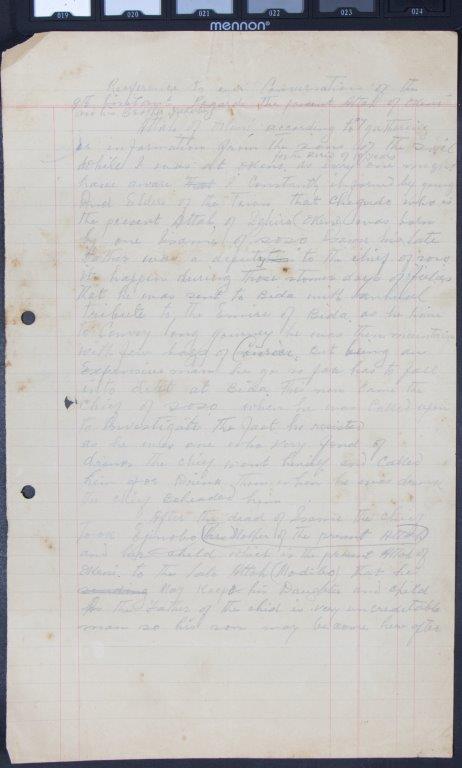 019 020 021 022 023 024
mennon
Reeference to our Conversations of the
9th instant Regards the present Attah of Okeni
and his Brother
Attah of Okeni according to gathering
or information from the sons of the soil
While I was at Okene as every one might
have aware that I Constantly informed by young
And Elders of the Town that Chequedo who is
the present Attah of Igbira (Okeni) was born
by one Isame of soso Isame his late
father was a deputy to the Chief of soso
it happen during those stones days of
that he was sent to Bida with annual
Tribute to the Emire of Bida, as he him
to Convoy long journey he was then
with few bags of Couries. but being an
Expensive man he go so far has to fall
into debt at Bida The news came the
Chief of soso when he was Called upon
to Investigate the fact he resisted
as he was one who very fond of
drinks the Chief went and Called
him for Drink then when he was drunk
the Chief Beheaded him.
After the dead of Isame the Chief
took (his Mother) of the present Attah
and her child which is the present Attah of
Okeni. to the late Attah (Modibo) that he
may keep his Daughter and child
for the Father of the child is very uncreditable
man so his son may become here after